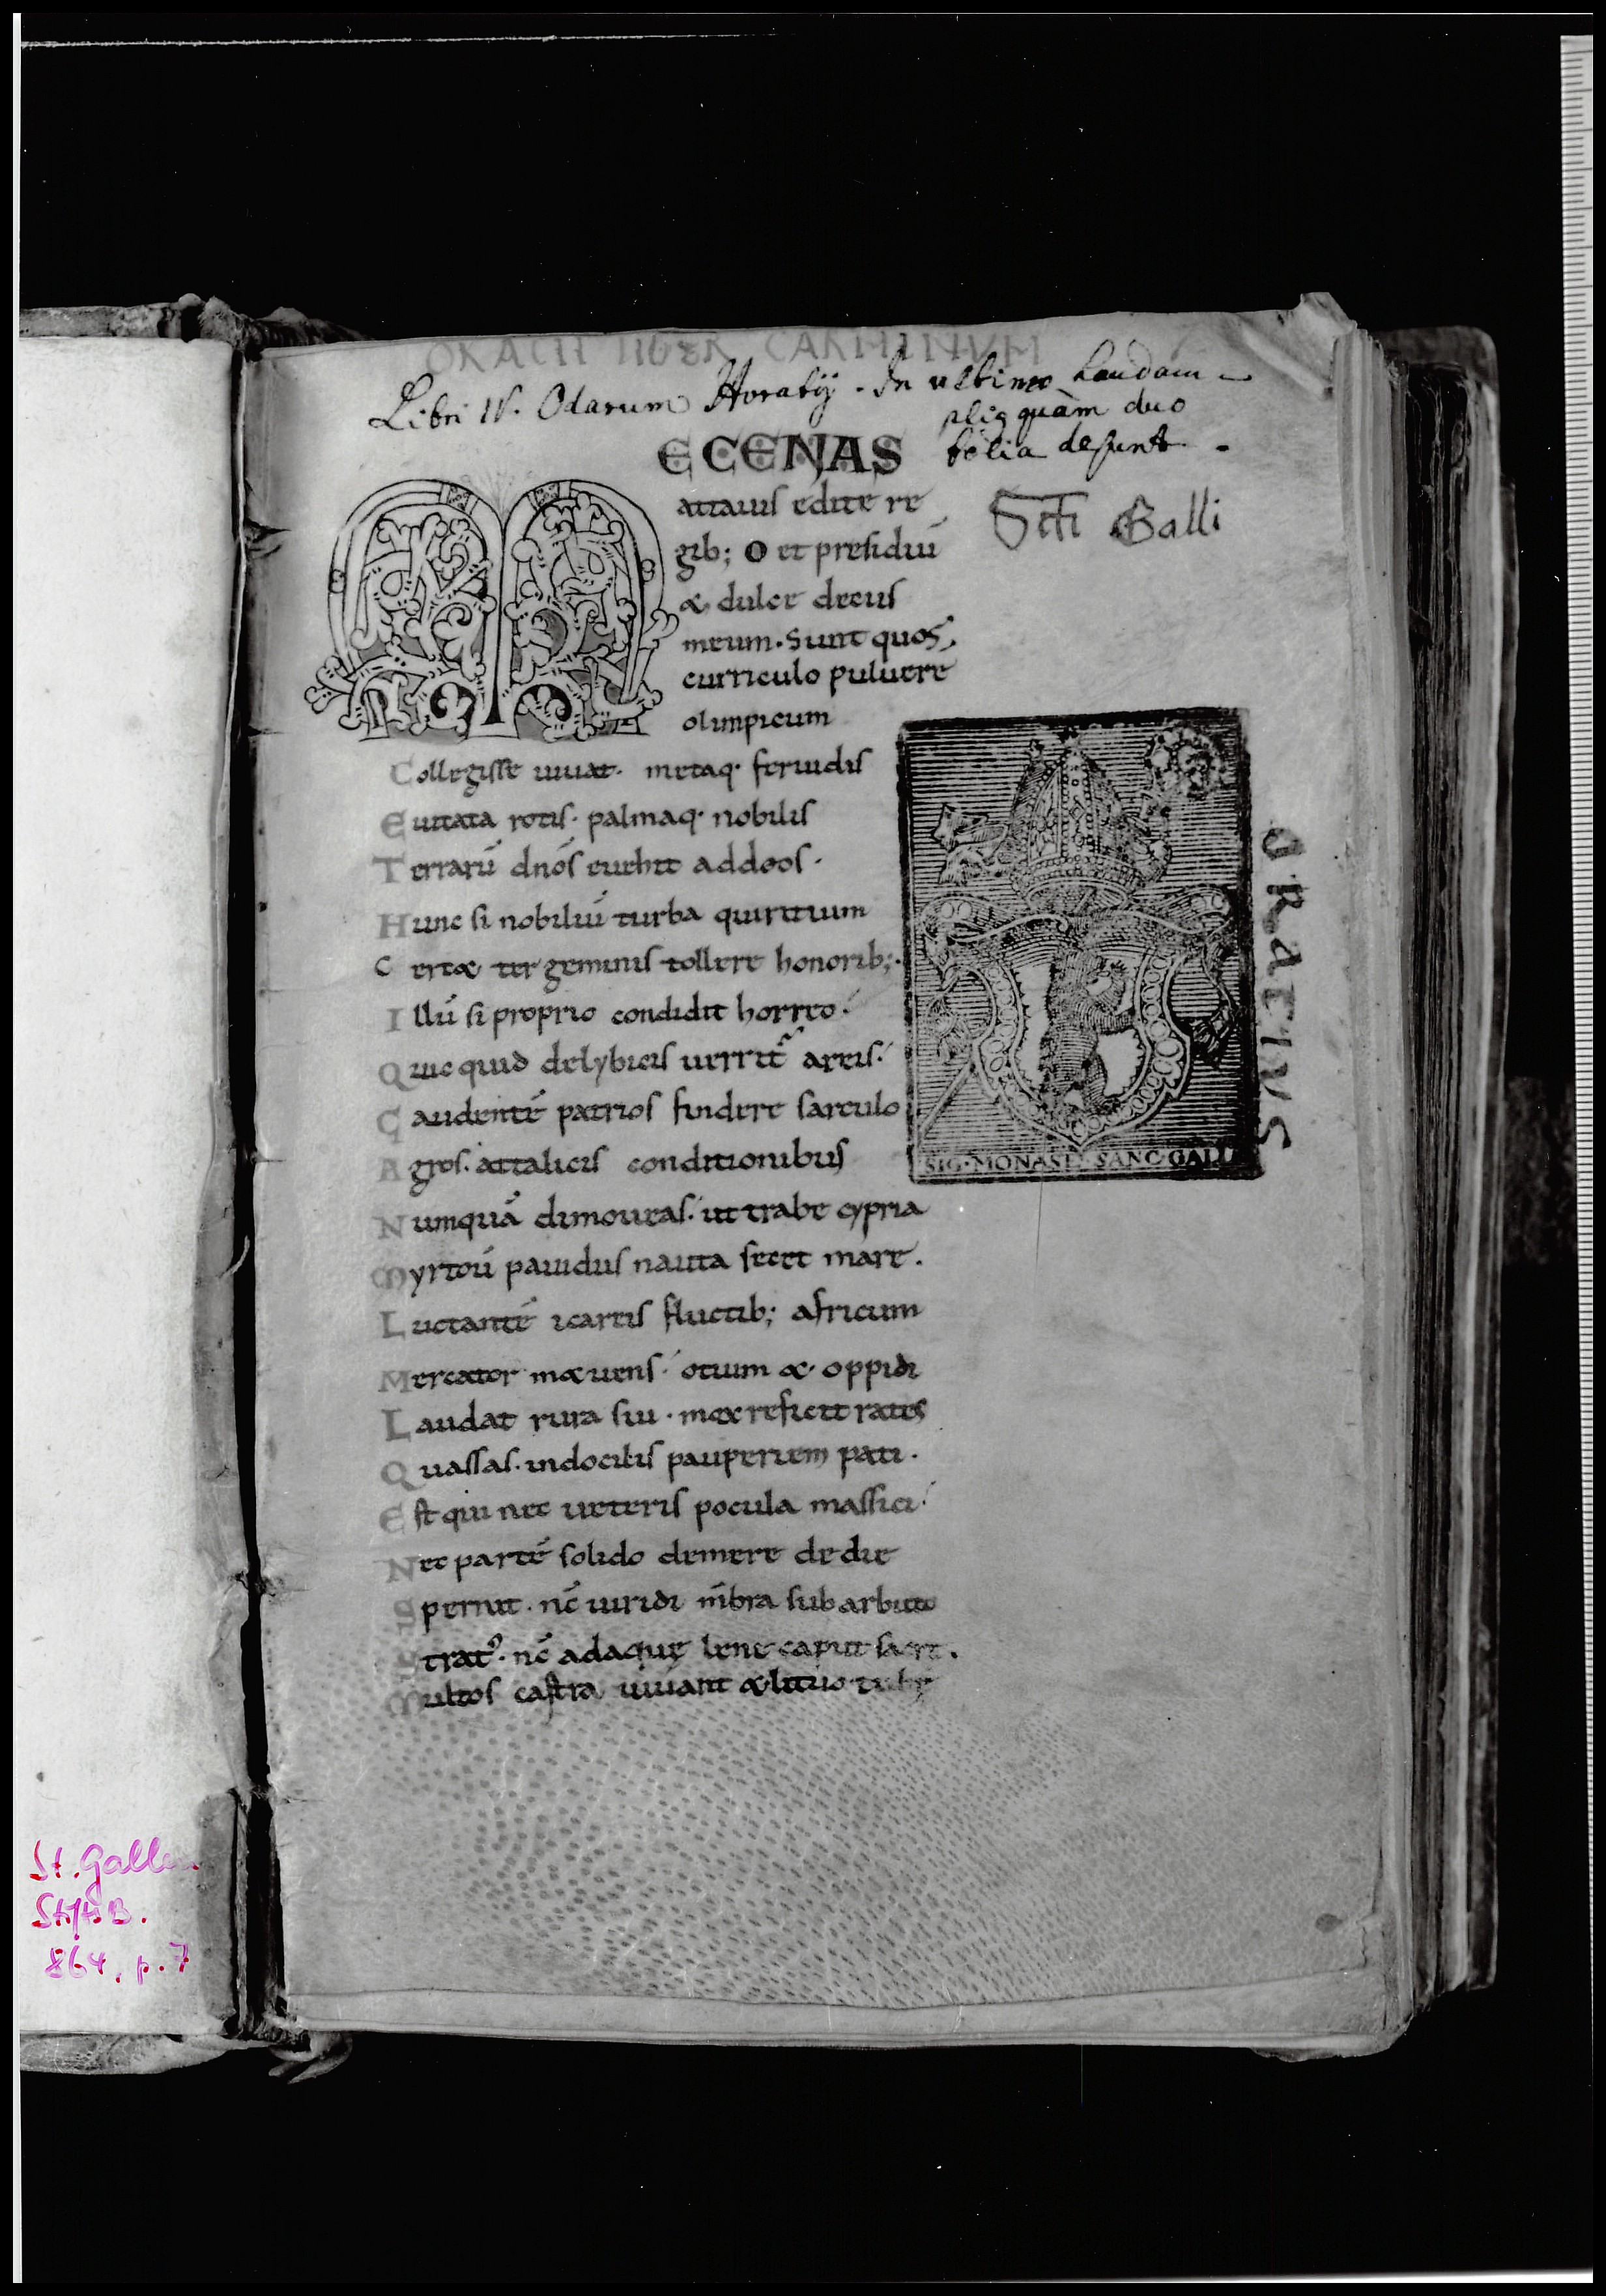 ORACII LIBER CARMINVM
Libri IV. Odarum Horatij. In ultimo
plig quàm duo
folia desunt.
MECENAS
attauis edite re
gib; O et presidiū
& dulce decus
meum. Sunt quos
curriculo puluere
olimpicum
Collegisse iuuat. metaq. feruidis
Euitata rotis. palmaq. nobilis
Terrarū dnōs euehit addeos.
Hunc si nobiliū turba quiritium
Certat tergeminis tollere honorib;.
Illū si proprio condidit horreo.
Quicquid delybicis uerrit areis.
Gaudentē patrios findere sarculo
Agros. attalicis conditionibus
Numquā dimoueas. ut trabe cypria
Myrtoū pauidus nauta secet mare.
Luctantē icariis fluctib; africum
Mercator m&uens. otium & oppidi
Laudat rura sui. mox reficit rates
Quassas. indocilis pauperiem pati.
Est qui nec ueteris pocula massici.
Nec partē solido demere dedie
Spernit. nc̄ uiridi m̄bra sub arbuto
Strat9. nc̄ adaquę lene caput sacrę.
Multos castra iuuant & lituo tubę
Scti Galli
SIG. MONAST. SANC GALLI
ORATIVS
St. Gallen
StiftsB.
864, p. 7